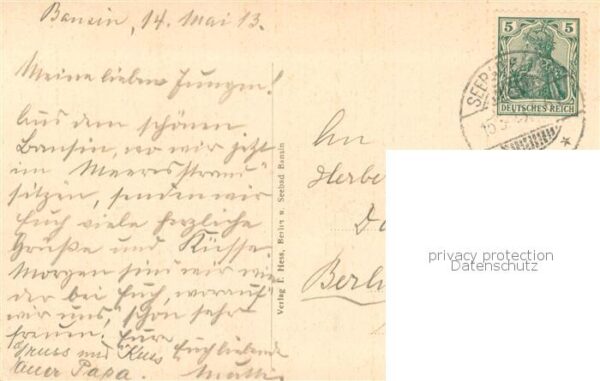 Bansin, 14. Mai 13.
Meine lieben Jungen!
Aus dem schönen
Bansin, wo wir jetzt
im Meeresstrand
sitzen, senden wir
Euch viele herzliche
Grüße und Küsse.
Morgen sind wir wie
der bei Euch, worauf
wir uns schon sehr
freuen. Eure
Euch liebende
Mutti
Gruss und Kuss
Euer Papa.
Verlag F. Hess, Berlin u. Seebad Bansin
5 5
DEUTSCHES REICH
SEEB
15.5
An
Herbe
Berli
privacy protection
Datenschutz